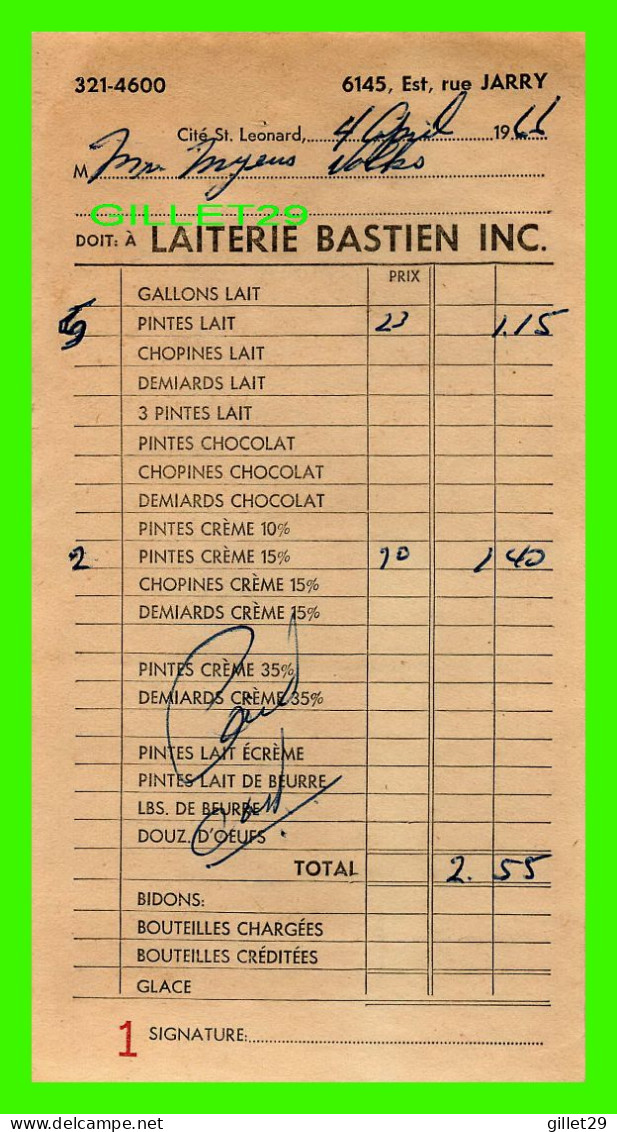 321-4600 6145, Est, rue JARRY
Cité St. Leonard, 4 April 1966
M Mr. Myers Volks
GILLET29
DOIT: À LAITERIE BASTIEN INC.
PRIX
GALLONS LAIT
5 PINTES LAIT 23 1.15
CHOPINES LAIT
DEMIARDS LAIT
3 PINTES LAIT
PINTES CHOCOLAT
CHOPINES CHOCOLAT
DEMIARDS CHOCOLAT
PINTES CRÈME 10%
2 PINTES CRÈME 15% 70 1 40
CHOPINES CRÈME 15%
DEMIARDS CRÈME 15%
PINTES CRÈME 35%
DEMIARDS CRÈME 35%
Paid
PINTES LAIT ÉCRÈME
PINTES LAIT DE BEURRE
LBS. DE BEURRE
DOUZ. D'OEUFS
TOTAL 2. 55
BIDONS:
BOUTEILLES CHARGÉES
BOUTEILLES CRÉDITÉES
GLACE
1 SIGNATURE:
delcampe.net gillet29